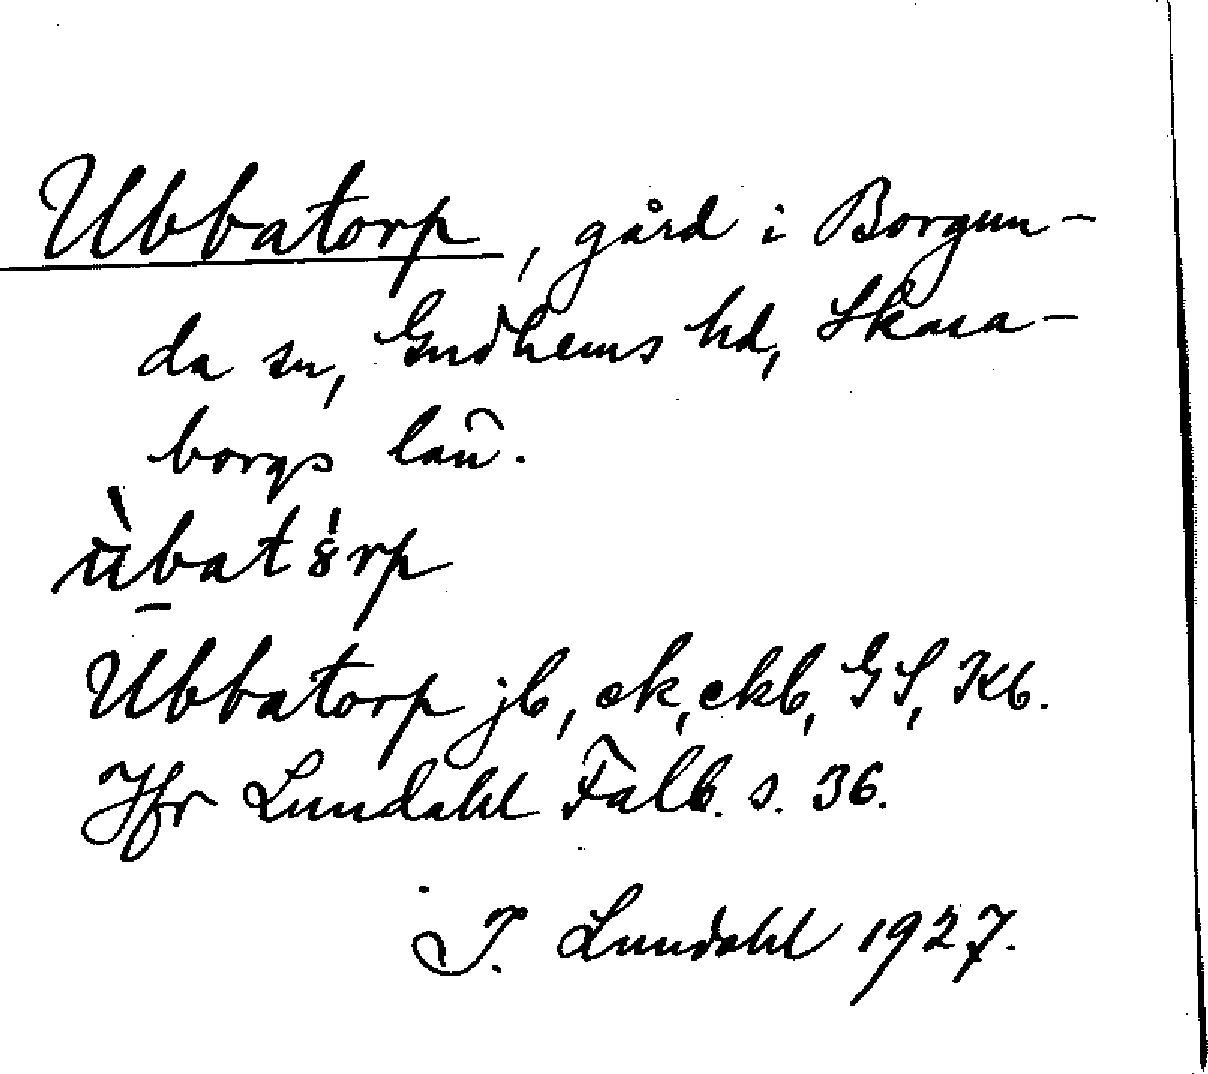 Ubbatorp, gård i Borgun-
da sn, Gudhems hd, Skara-
borgs län.
Ubbatorp jb, ek, ekb, GS, Kb.
Jfr Lundahl Falb. s. 36.
I. Lundahl 1927.